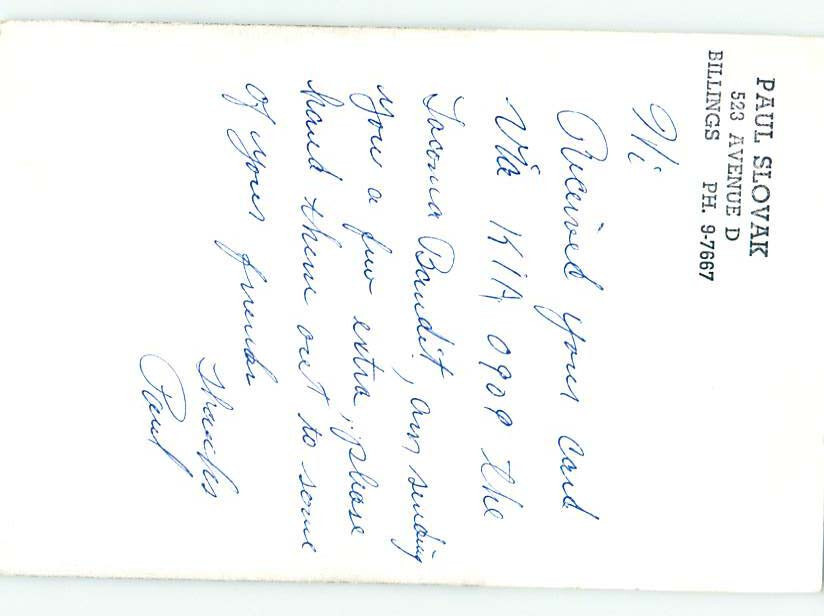 PAUL SLOVAK
523 AVENUE D
BILLINGS PH. 9-7667
Hi
Received your card
Via KIA 0909 the
Tacoma Bandit, am sending
you a few extra, please
hand them out to some
of your friends
Thanks
Paul